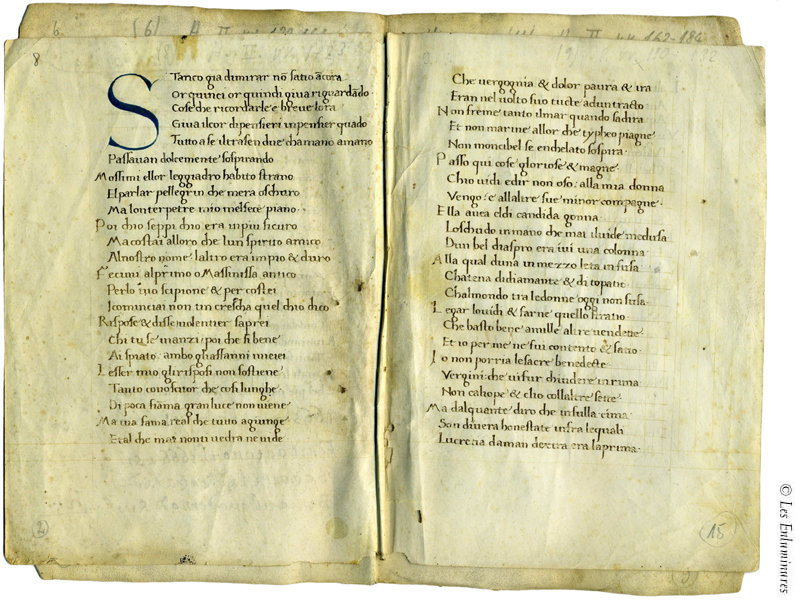 8
Stanco gia di mirar nõ satio ãcora
Or quinci or quindi giua riguardãdo
Cose che ricordarle e breue lora
Giua il cor di pensieri in pensier quado
Tutto a se il trasen due cha mano a mano
Passauan dolcemente sospirando
Mossimi ellor leggiadro habito strano
El parlar pellegrin che mera oschuro
Ma lonterpetre mio melfece piano
Poi chio seppi chio era in piu sicuro
Ma costai alloro che lun spirito amico
Al nostro nome laltro era impio & duro
Fecimi al primo o Massinissa antico
Per lo tuo scipione & per costei
Icominciai non tincrescha quel chio dico
Rispose & disse molentier saprei
Chi tu se inanzi poi che si bene
Ai spiato ambo gliaffanni miei
Lesser mio gli risposi non sostiene
Tanto conoscitor che cosi lunghe
Di poca fiãma gran luce non uiene
Ma tua fama real che tutto agiunge
E tal che mai non ti uedra ne uide
2
Che uergognia & dolor paura & ira
Eran nel uolto suo tucte ad un tracto
Non freme tanto il mar quando sadira
Et non marine allor che typheo piagne
Non moncibel se enchelato sospira
Passo qui cose gloriose & magne
Chio uidi e dir non oso alla mia donna
Vengo e allaltre sue minor compagne
Ella auea el di candida gonna
Lo schudo in mano che mal uide medusa
Dun bel diaspro era iui una colonna
Alla qual duna in mezzo leta infusa
Chatena di diamante & di topatio
Chal mondo tra le donne oggi non susa
Legar louidi & farne quello stratio
Che basto bene amille altre uendette
Et io per me ne fui contento & satio
Io non porria le sacre benedecte
Vergini che ui fur chiudere in rima
Non caliope & clio collaltre sette
Ma dalquante diro che insulla cima
Son di uera honestate infra le quali
Lucretia da man dextra era la prima
15
© Les Enluminures